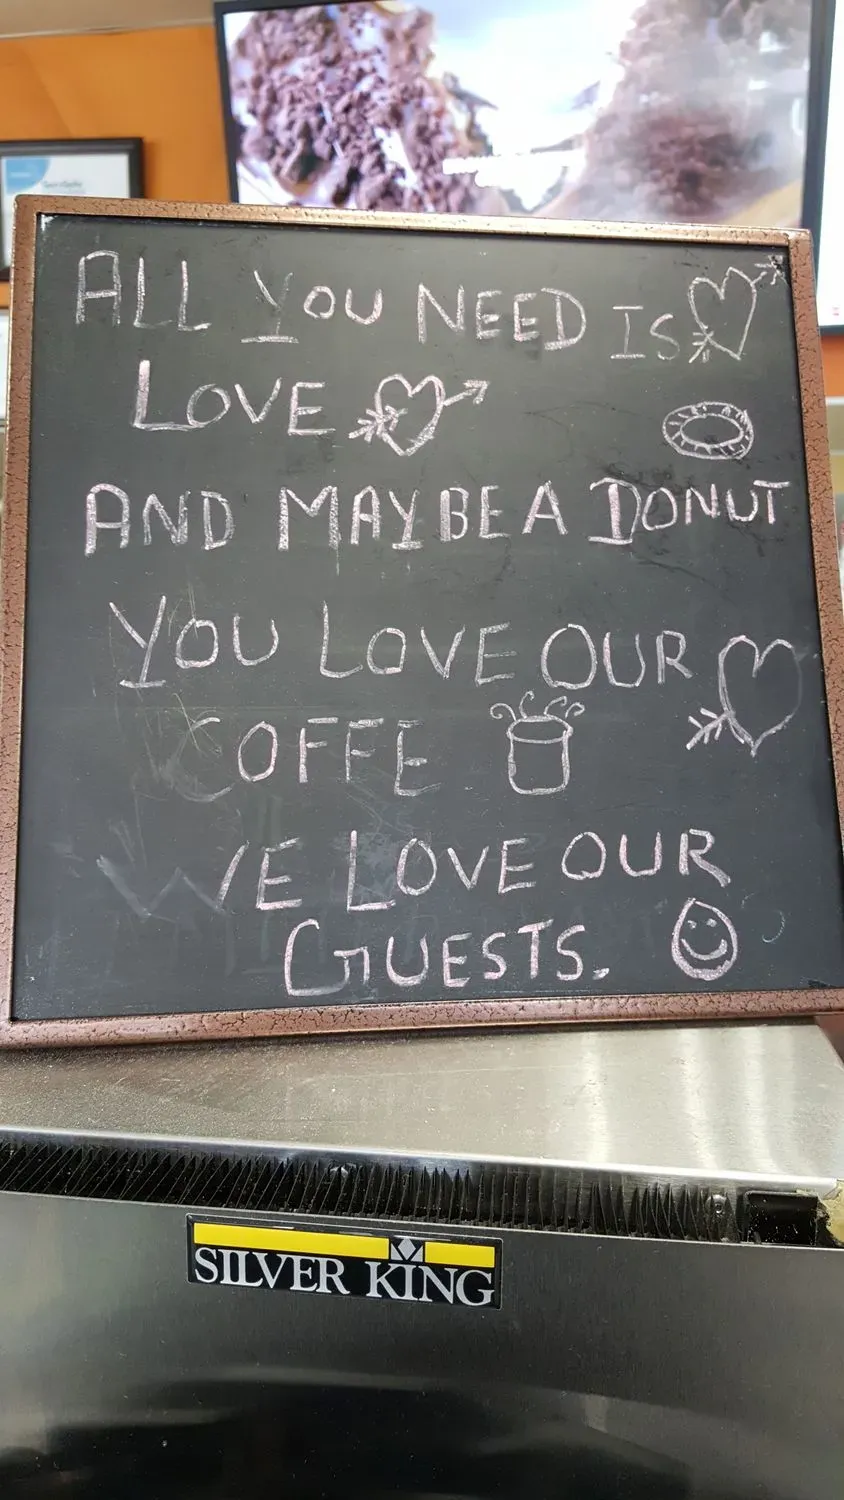 ALL YOU NEED IS
LOVE
AND MAYBE A DONUT
YOU LOVE OUR
COFFE
WE LOVE OUR
GUESTS.
SILVER KING